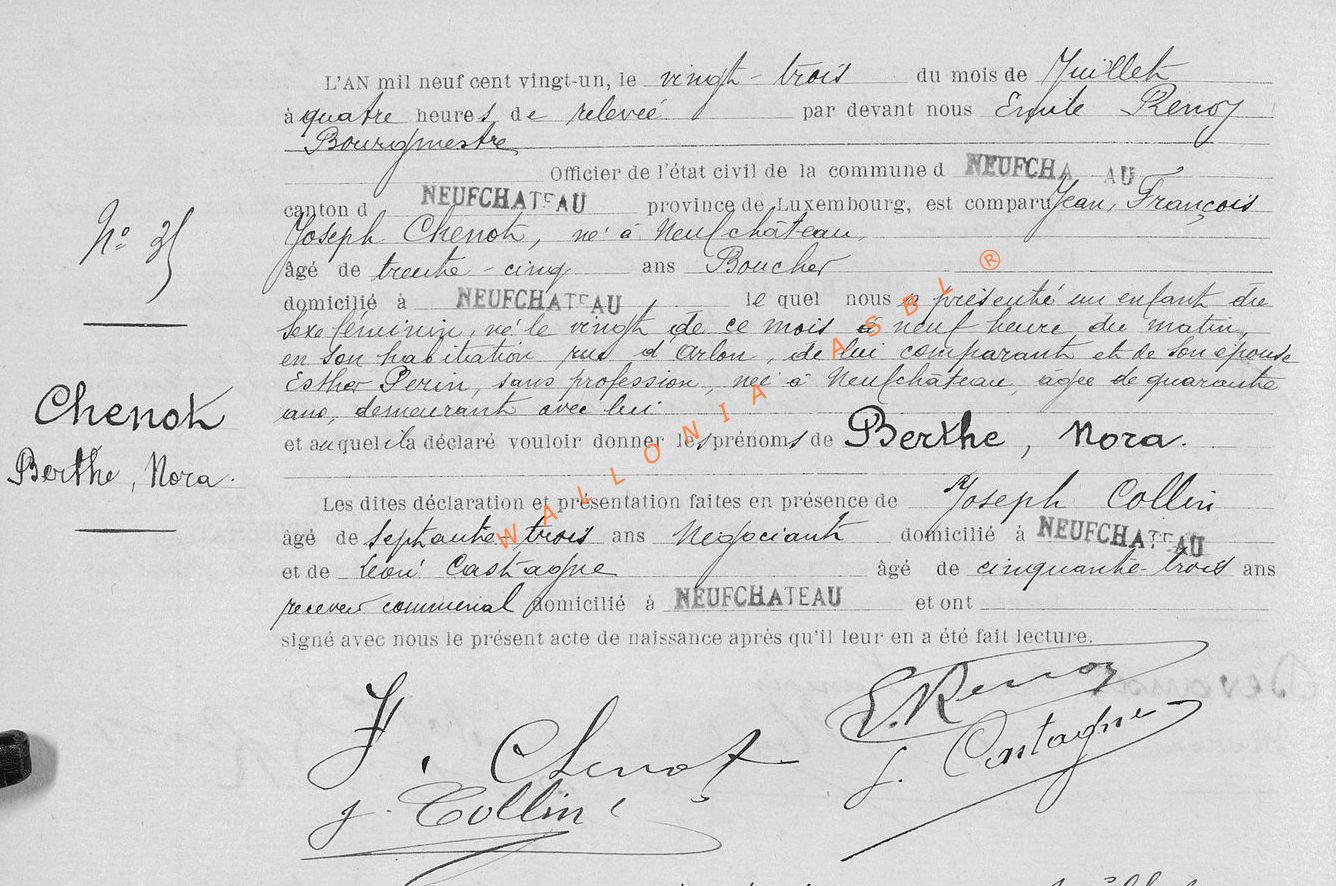 L'AN mil neuf cent vingt-un, le vingt-trois du mois de Juillet
à quatre heures de relevée par devant nous Emile Renoy
Bourgmestre
Officier de l'état civil de la commune d NEUFCHA AU
canton d NEUFCHATEAU province de Luxembourg, est comparu Jean, François
Joseph Chenot, né à Neufchâteau,
âgé de trente-cinq ans Boucher
domicilié à NEUFCHATEAU le quel nous a présenté un enfant du
sexe féminin, né le vingt de ce mois à neuf heure du matin,
en son habitation rue d'Arlon, de lui comparant et de son épouse
Esther Perin, sans profession, née à Neufchâteau, âgée de quarante
ans, demeurant avec lui
et auquel il a déclaré vouloir donner les prénoms de Berthe, Nora.
Nº
Chenot
Berthe, Nora.
Les dites déclaration et présentation faites en présence de Joseph Collin
âgé de septante trois ans Négociant domicilié à NEUFCHATEAU
et de Castagne âgé de cinquante-trois ans
receveur communal domicilié à NEUFCHATEAU et ont
signé avec nous le présent acte de naissance après qu'il leur en a été fait lecture.
J. Chenot
E. Renoy
J. Castagne
J. Collin
WALLONIA ASBL ®